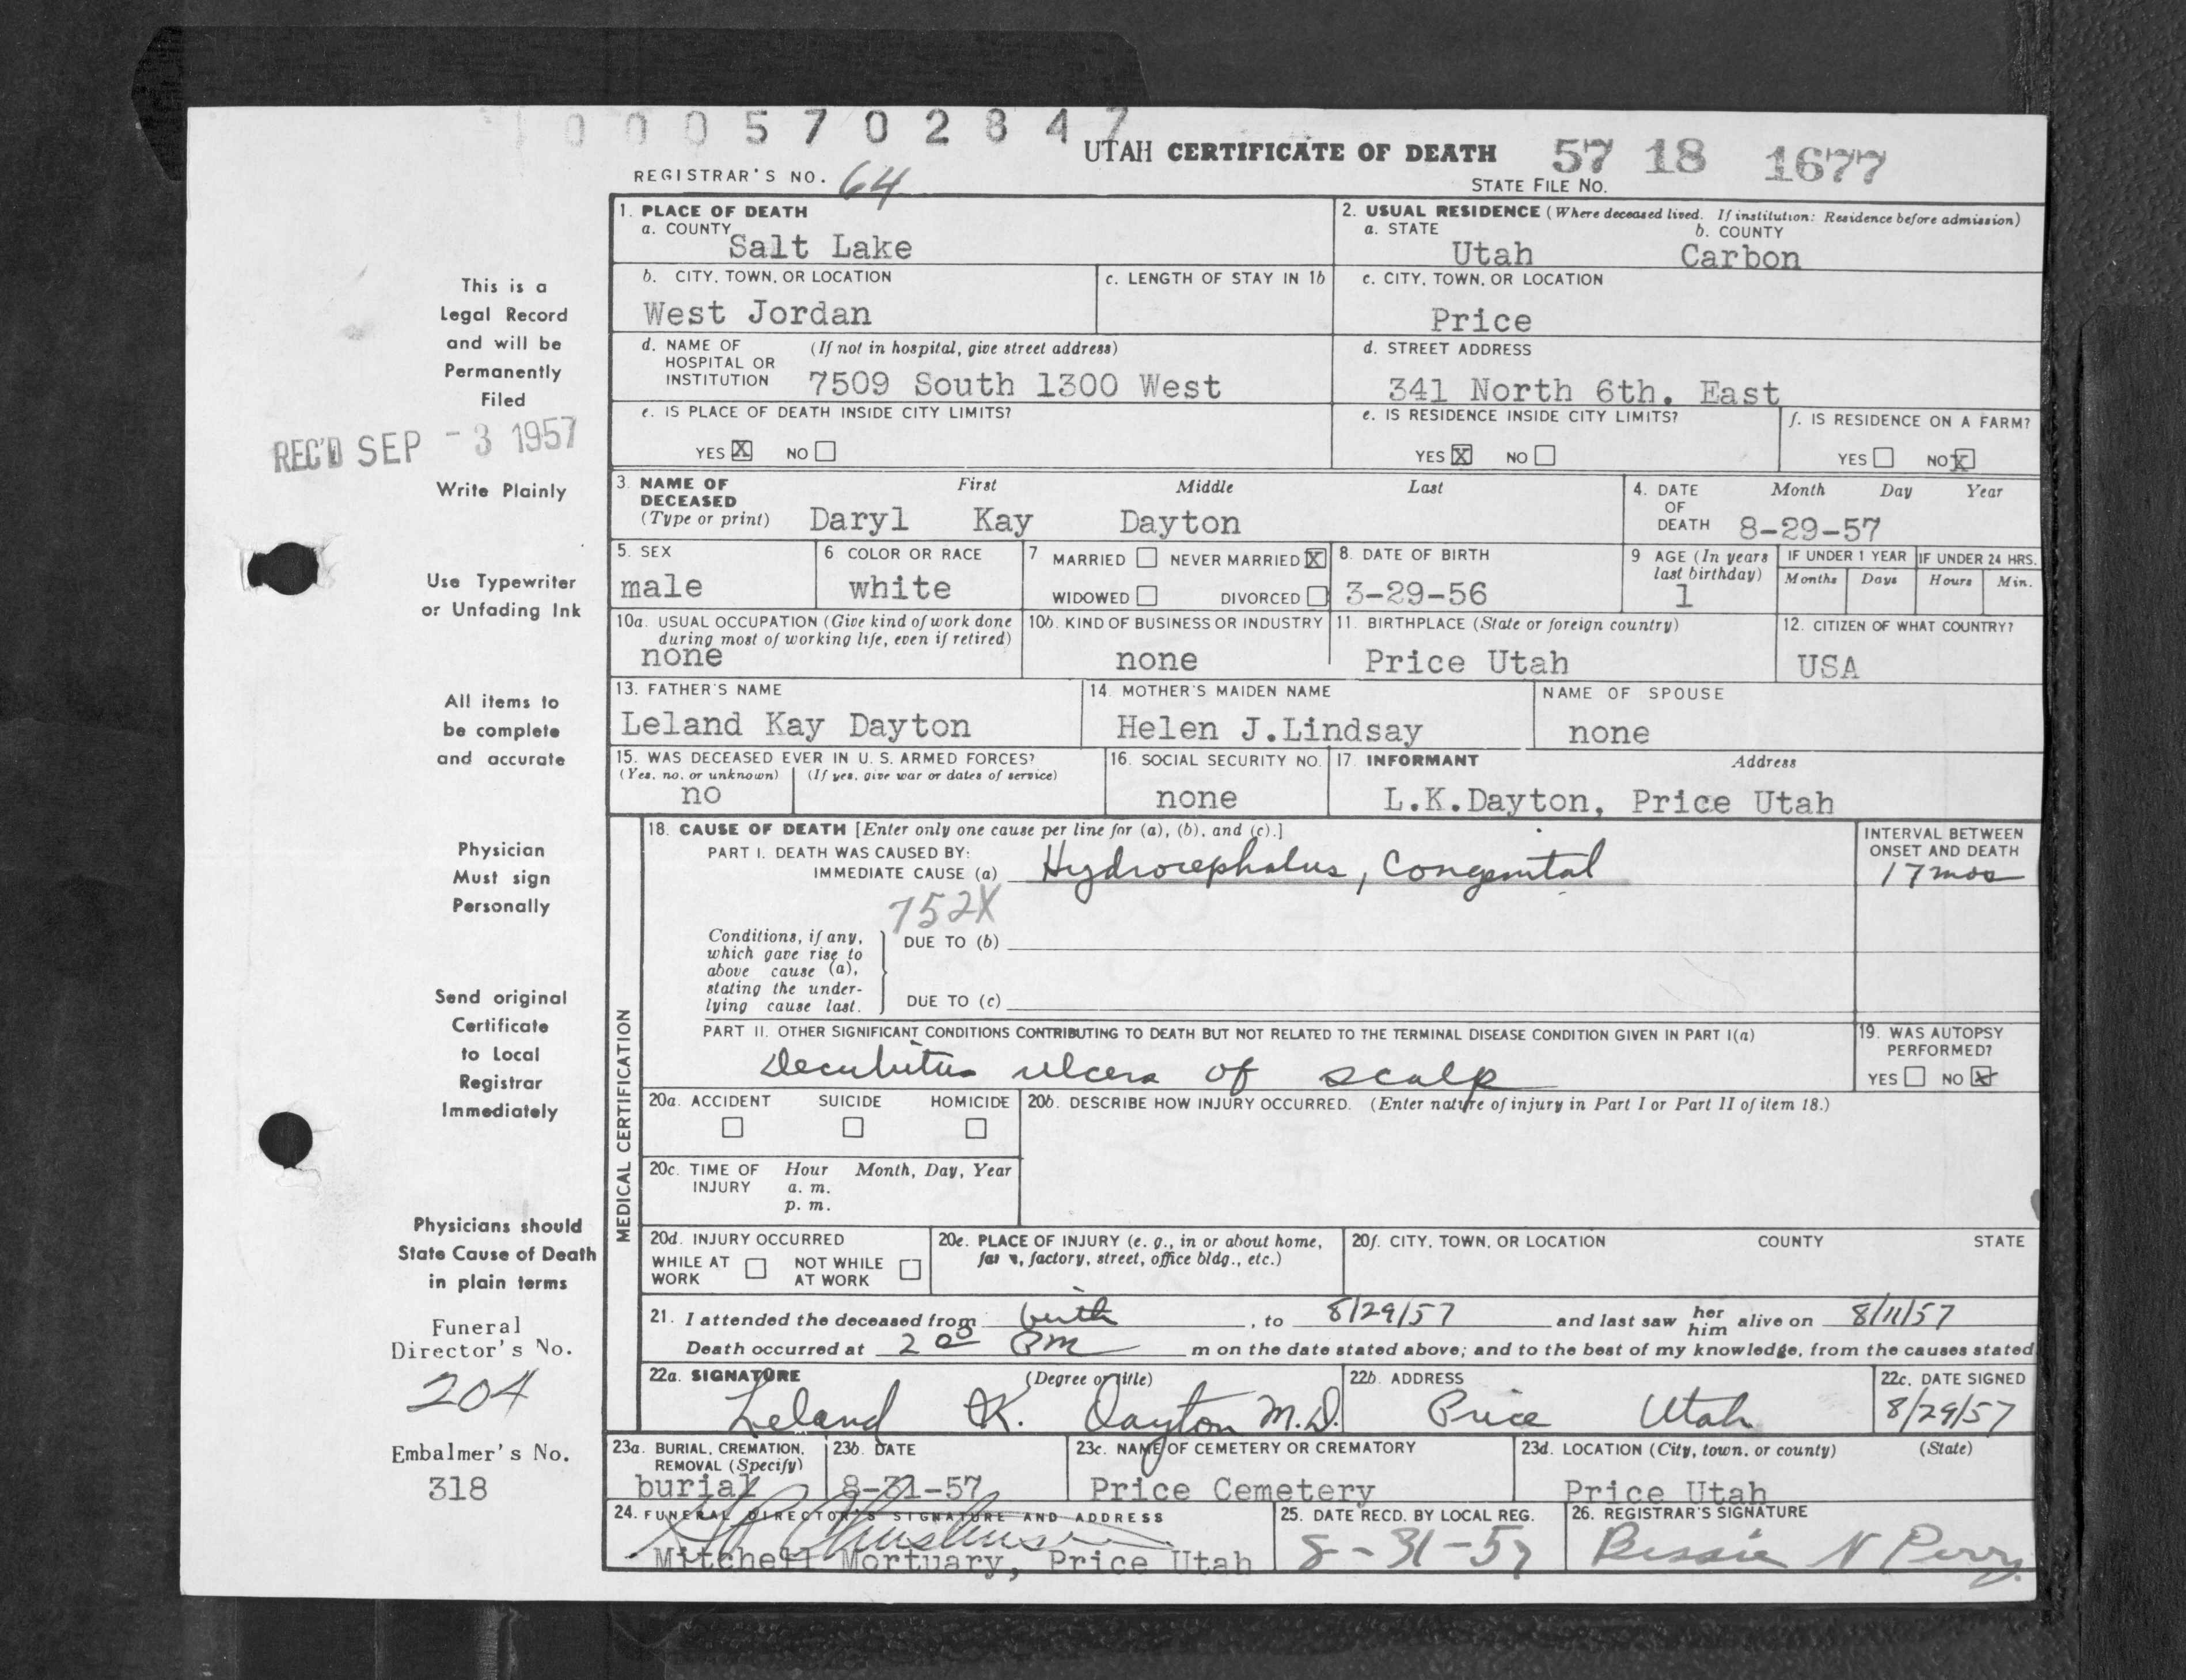 0 0 0 5 7 0 2 8 4 7
UTAH CERTIFICATE OF DEATH 57 18 1677
REGISTRAR'S NO. 64
STATE FILE NO.
1. PLACE OF DEATH
a. COUNTY
Salt Lake
2. USUAL RESIDENCE (Where deceased lived. If institution: Residence before admission)
a. STATE b. COUNTY
Utah Carbon
b. CITY, TOWN, OR LOCATION
West Jordan
c. LENGTH OF STAY IN 1b
c. CITY, TOWN, OR LOCATION
Price
d. NAME OF HOSPITAL OR INSTITUTION (If not in hospital, give street address)
7509 South 1300 West
d. STREET ADDRESS
341 North 6th. East
e. IS PLACE OF DEATH INSIDE CITY LIMITS?
YES X NO
e. IS RESIDENCE INSIDE CITY LIMITS?
YES X NO
f. IS RESIDENCE ON A FARM?
YES NO X
3. NAME OF DECEASED (Type or print) First Middle Last
Daryl Kay Dayton
4. DATE OF DEATH Month Day Year
8-29-57
5. SEX
male
6 COLOR OR RACE
white
7 MARRIED NEVER MARRIED X
WIDOWED DIVORCED
8. DATE OF BIRTH
3-29-56
9 AGE (In years last birthday)
1
IF UNDER 1 YEAR
Months Days
IF UNDER 24 HRS.
Hours Min.
10a. USUAL OCCUPATION (Give kind of work done during most of working life, even if retired)
none
10b. KIND OF BUSINESS OR INDUSTRY
none
11. BIRTHPLACE (State or foreign country)
Price Utah
12. CITIZEN OF WHAT COUNTRY?
USA
13. FATHER'S NAME
Leland Kay Dayton
14. MOTHER'S MAIDEN NAME
Helen J.Lindsay
NAME OF SPOUSE
none
15. WAS DECEASED EVER IN U. S. ARMED FORCES?
(Yes, no, or unknown) (If yes, give war or dates of service)
no
16. SOCIAL SECURITY NO.
none
17. INFORMANT Address
L.K.Dayton, Price Utah
MEDICAL CERTIFICATION
18. CAUSE OF DEATH [Enter only one cause per line for (a), (b), and (c).]
PART I. DEATH WAS CAUSED BY:
IMMEDIATE CAUSE (a) Hydrocephalus, Congenital
INTERVAL BETWEEN ONSET AND DEATH
17 mos
752X
Conditions, if any, which gave rise to above cause (a), stating the underlying cause last.
DUE TO (b)
DUE TO (c)
PART II. OTHER SIGNIFICANT CONDITIONS CONTRIBUTING TO DEATH BUT NOT RELATED TO THE TERMINAL DISEASE CONDITION GIVEN IN PART I(a)
Decubitus ulcers of scalp
19. WAS AUTOPSY PERFORMED?
YES NO X
20a. ACCIDENT SUICIDE HOMICIDE
20b. DESCRIBE HOW INJURY OCCURRED. (Enter nature of injury in Part I or Part II of item 18.)
20c. TIME OF INJURY Hour Month, Day, Year
a. m.
p. m.
20d. INJURY OCCURRED
WHILE AT WORK NOT WHILE AT WORK
20e. PLACE OF INJURY (e. g., in or about home, farm, factory, street, office bldg., etc.)
20f. CITY, TOWN, OR LOCATION COUNTY STATE
21. I attended the deceased from birth, to 8/29/57 and last saw her him alive on 8/11/57
Death occurred at 2 00 PM m on the date stated above; and to the best of my knowledge, from the causes stated
22a. SIGNATURE (Degree or title)
Leland K. Dayton M.D.
22b. ADDRESS
Price Utah
22c. DATE SIGNED
8/29/57
23a. BURIAL, CREMATION, REMOVAL (Specify)
burial
23b. DATE
8-31-57
23c. NAME OF CEMETERY OR CREMATORY
Price Cemetery
23d. LOCATION (City, town, or county) (State)
Price Utah
24. FUNERAL DIRECTOR'S SIGNATURE AND ADDRESS
Mitchell Mortuary, Price Utah
25. DATE RECD. BY LOCAL REG.
8-31-57
26. REGISTRAR'S SIGNATURE
Bessie N Perry
This is a
Legal Record
and will be
Permanently
Filed
REC'D SEP -3 1957
Write Plainly
Use Typewriter
or Unfading Ink
All items to
be complete
and accurate
Physician
Must sign
Personally
Send original
Certificate
to Local
Registrar
Immediately
Physicians should
State Cause of Death
in plain terms
Funeral
Director's No.
204
Embalmer's No.
318